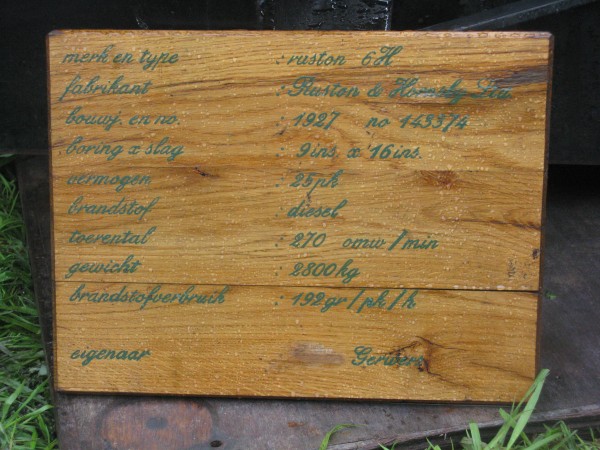 merk en type : ruston 6H
fabrikant : Ruston & Hornsby Ltd.
bouwj. en no. : 1927 no 143374
boring x slag : 9 ins. x 16 ins.
vermogen : 25 pk
brandstof : diesel
toerental : 270 omw/min
gewicht : 2800 kg
brandstofverbruik : 192 gr/pk/h
eigenaar Gerwers